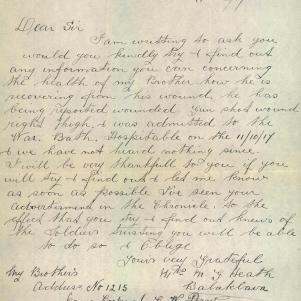 Dear Sir
I am writting to ask you
would you kindly try & find out
any information you can concerning
the health of my Brother how he is
recovering from his wound, he has
being reported wounded Gun shot wound
right thigh, & was admitted to the
War. Bath. Hospitable on the 11/10/17
& we have not heard nothing since
I will be very thankfull to you if you
will try & find out & let me know
as soon as possible I've seen your
advertisment in the Chronicle. to the
effect that you try & find out knews of
the Soldiers trusting you will be able
to do so & Oblige
Yours very Grateful
Mrs M. J Heath
My Brother's Balaklava
Address No 1215